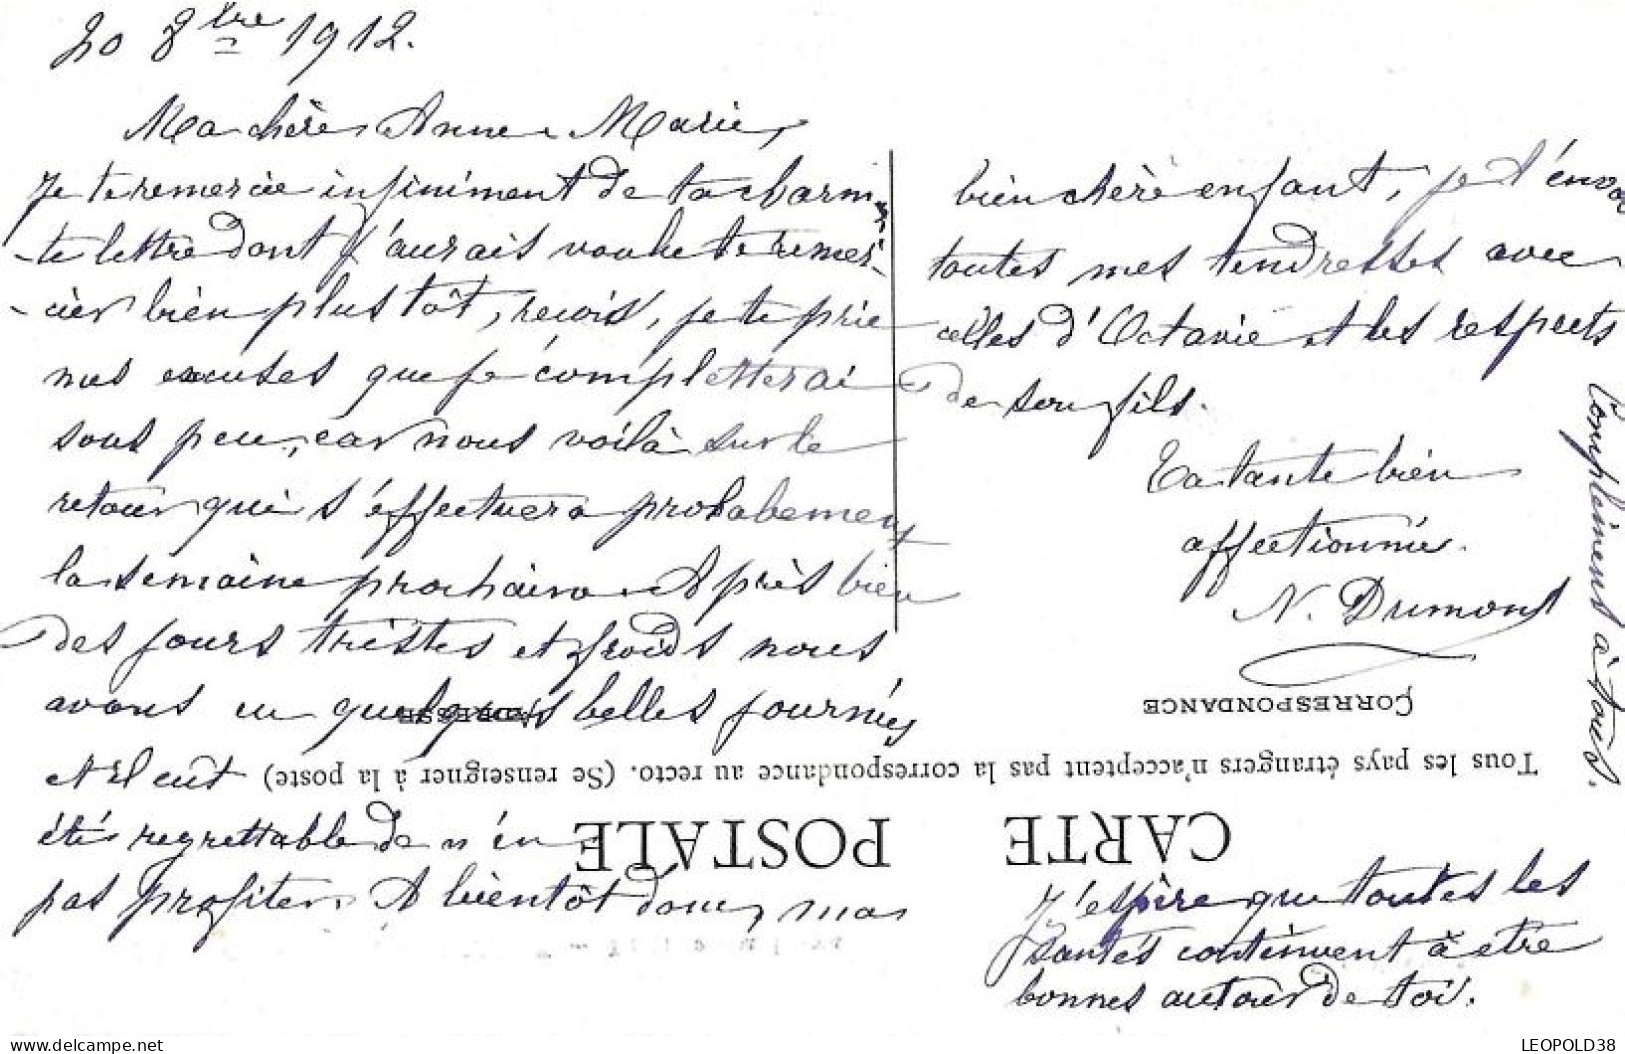 20 8bre 1912.
Ma chère Anne Marie,
Je te remercie infiniment de ta charman
-te lettre dont j'aurais voulu te remer-
-cier bien plus tôt, reçois, je te prie
mes excuses que je complétterai
sous peu, car nous voilà sur le
retour qui s'effectuera probablement
la semaine prochaine. Après bien
des jours tristes et froids nous
avons eu quelques belles journées
et il eut
été regrettable de n'en
pas profiter. A bientôt donc, ma
bien chère enfant, je t'envoie
toutes mes tendresses avec
celles d'Octavie et les respects
de son fils.
Ta tante bien
affectionnée.
N. Dumont
Compliments à tous.
J'espère que toutes les
santés continuent à être
bonnes autour de toi.
CARTE POSTALE
Tous les pays étrangers n'acceptent pas la correspondance au recto. (Se renseigner à la poste)
CORRESPONDANCE
ADRESSE
LEOPOLD38
www.delcampe.net